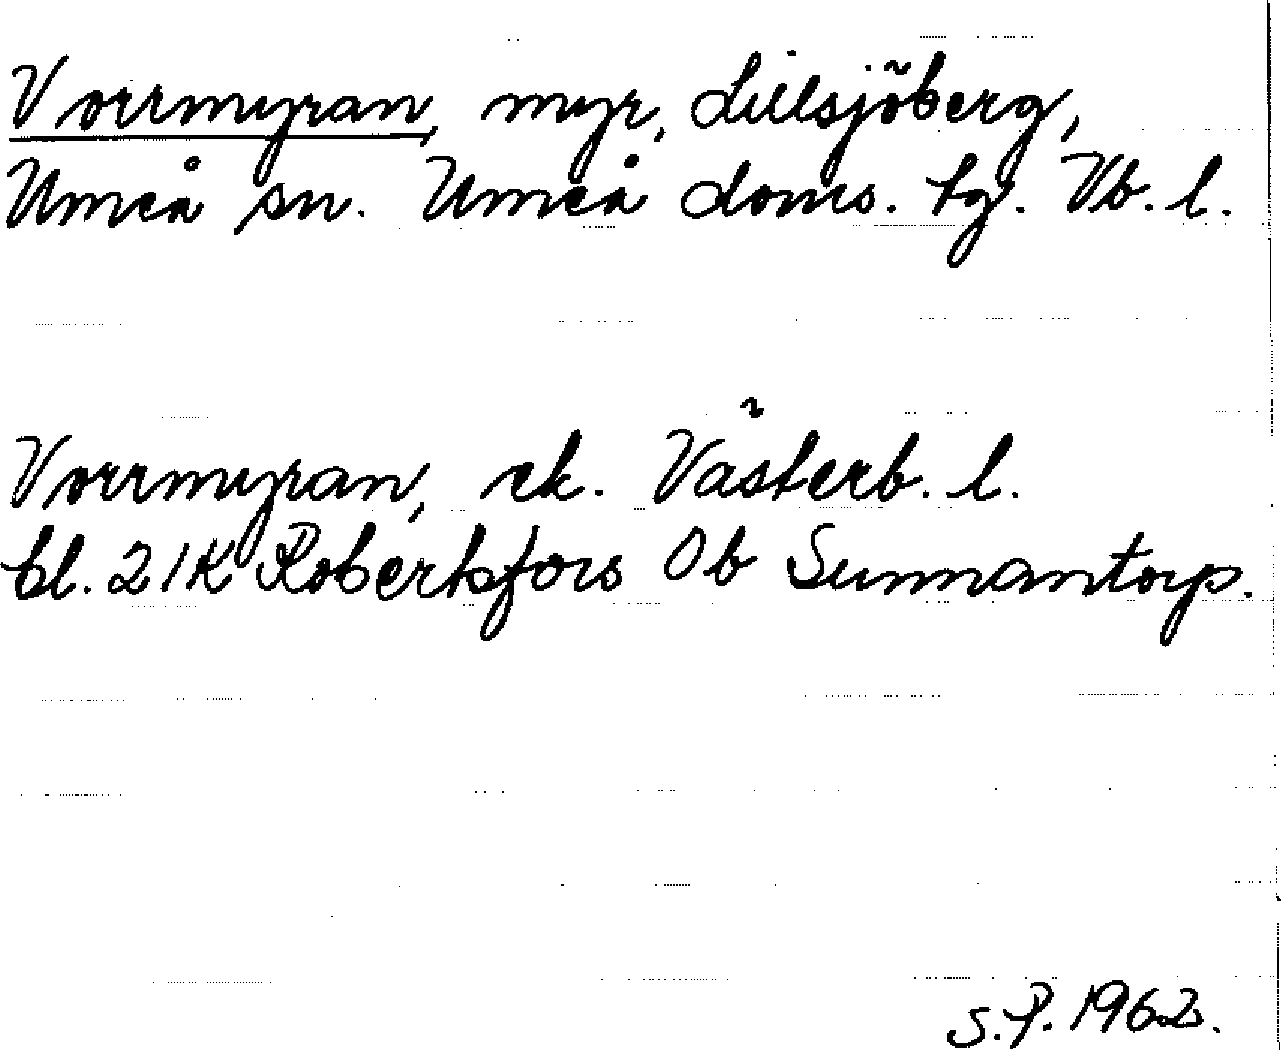 Vorrmyran, myr, Lillsjöberg,
Umeå sn. Umeå doms. tg. Vb. l.
Vorrmyran, ek. Västerb. l.
bl. 21K Robertsfors Ob Sunnantorp.
S.P. 1962.